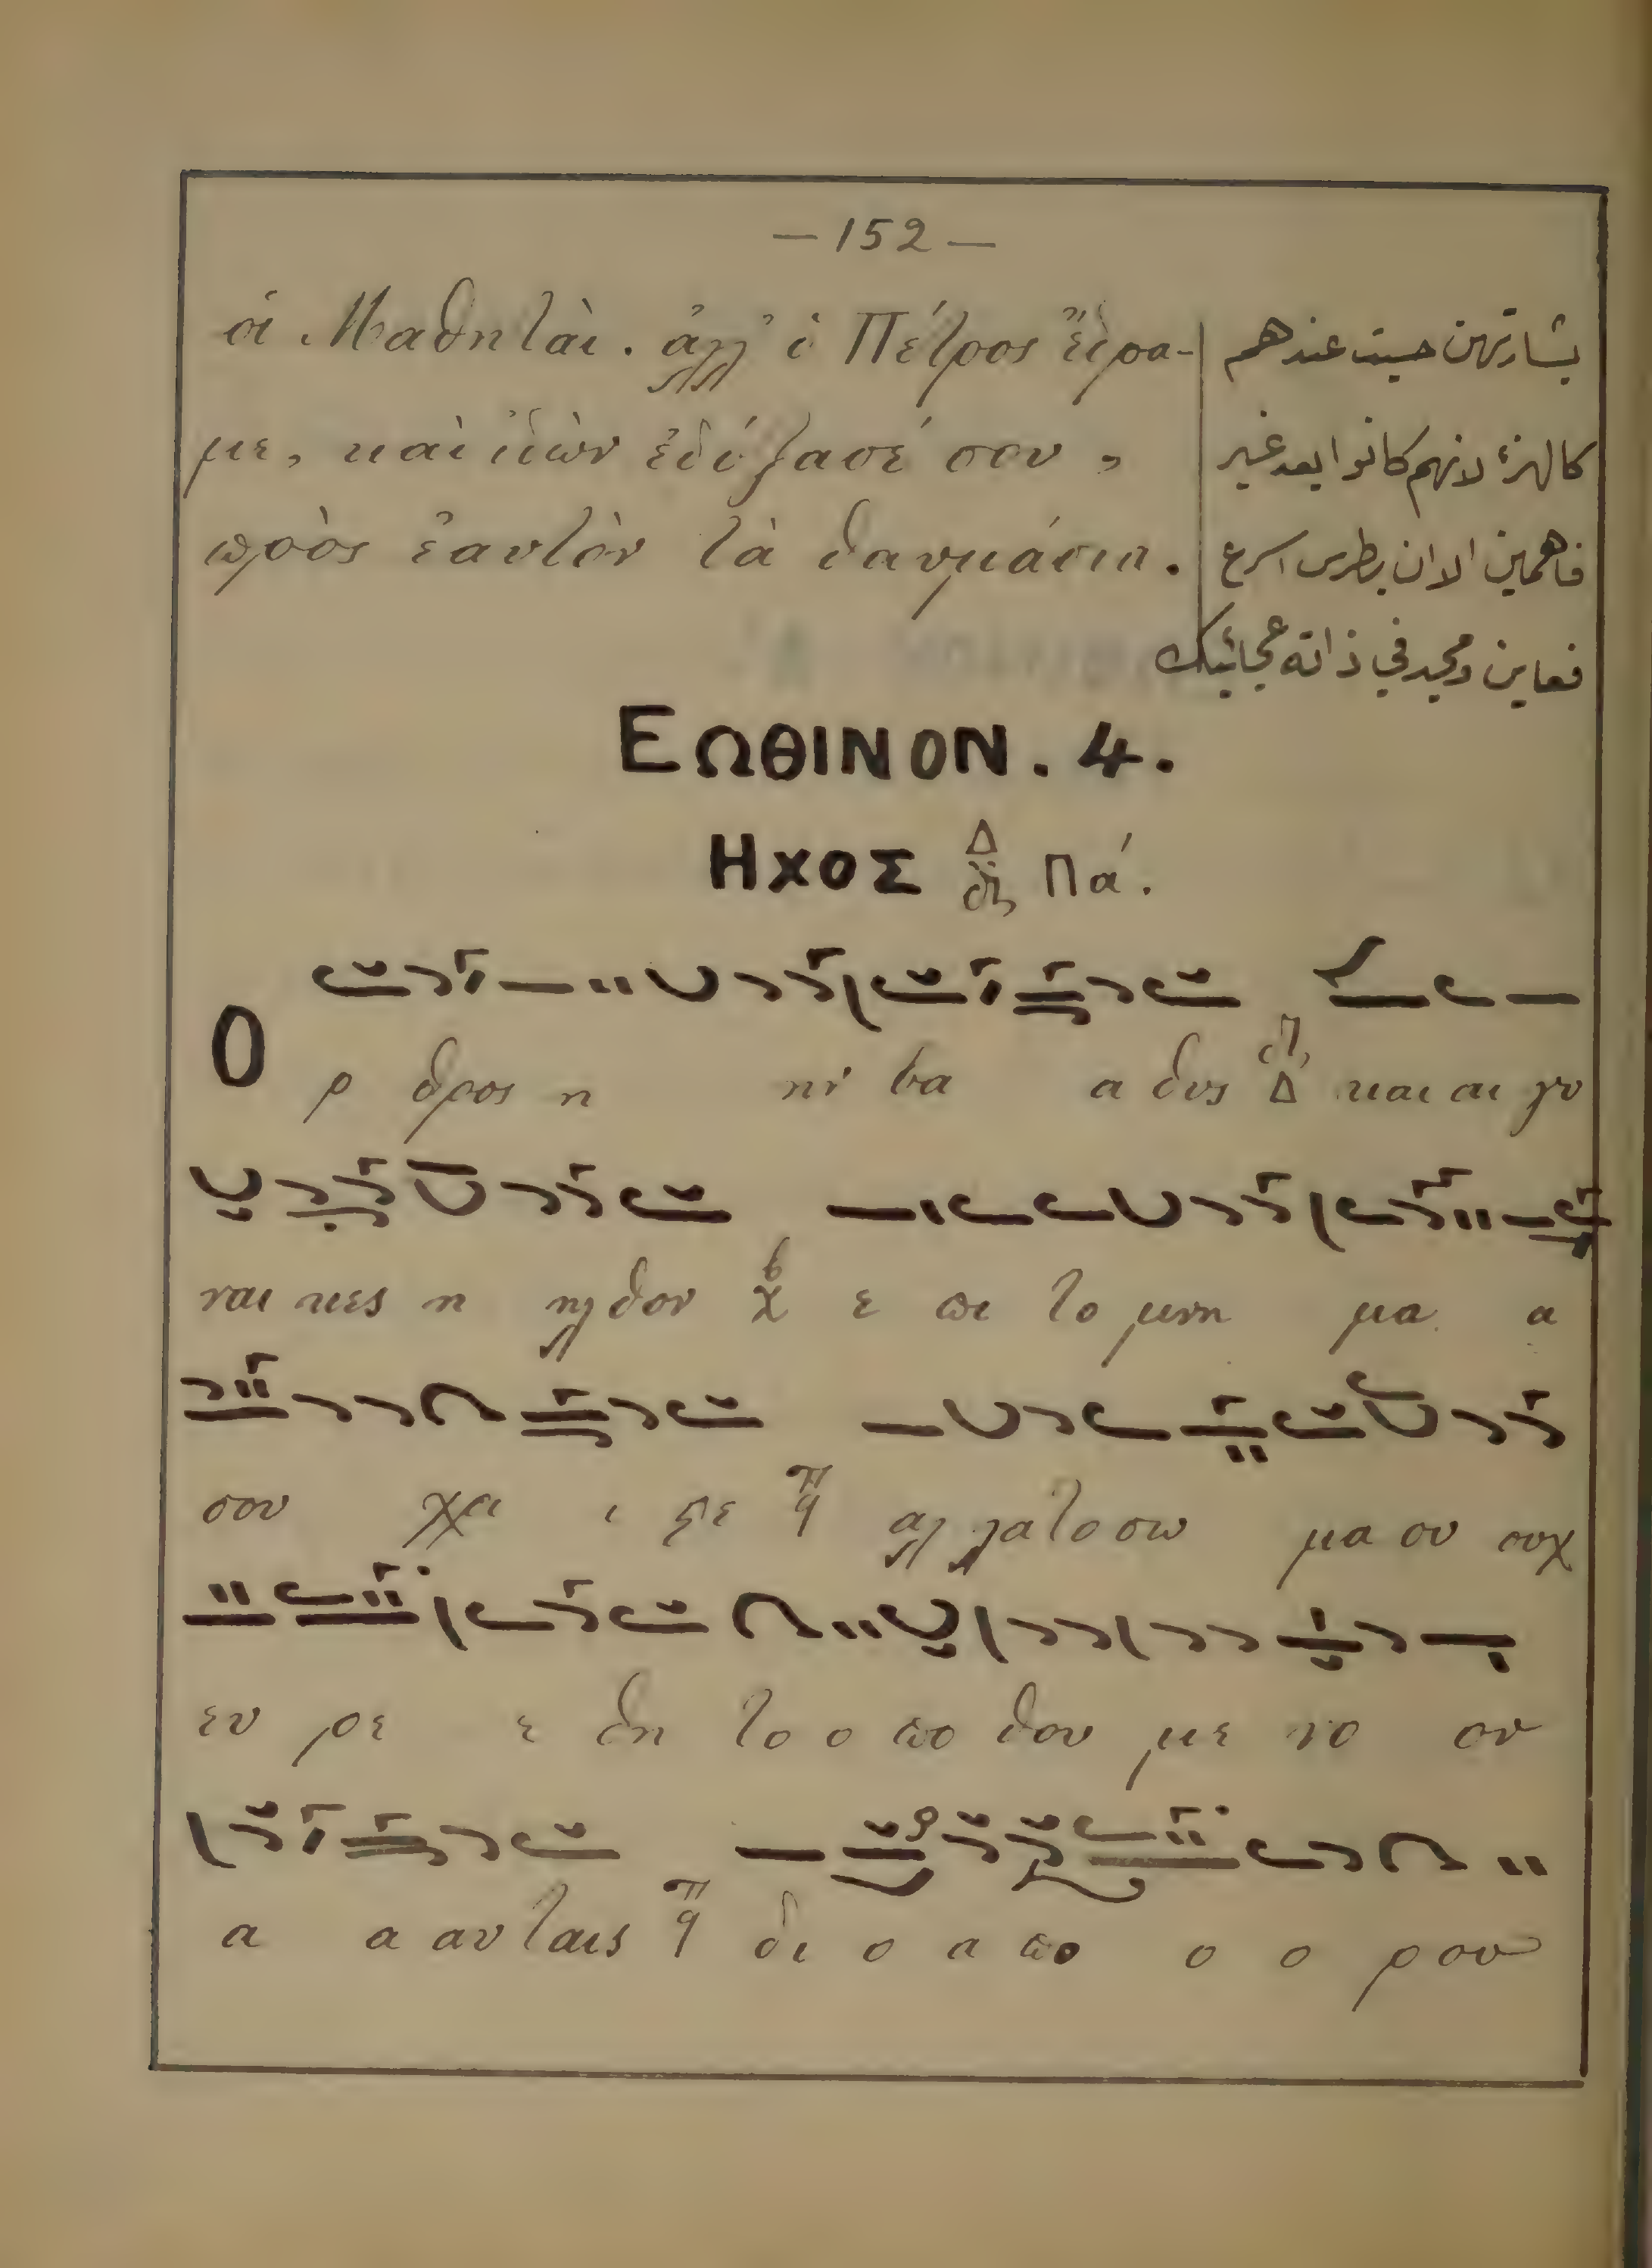 — 152 —
οἱ Μαθηταὶ. ἀλλ' ὁ Πέτρος ἔδρα-
με, καὶ ἰδὼν ἐδόξασέ σου,
πρὸς ἑαυτὸν τὰ θαυμάσια.
بشارتهن حسبت عندهم
كالهزء لانهم كانوا بعد غير
فاهمين الا ان بطرس اسرع
فعاين ومجد في ذاته عجائبك
ΕΩΘΙΝΟΝ. 4.
ΗΧΟΣ Δ Πα'.
Ο ρ θρος η ην βα α θυς Δ και αι γυ
ναι κες η ηλ θον ε πι το μνη μα α
σου χρι ι στε αλ λα το σω μα ου ουχ
ευ ρε ε θη το ο πο θου με νο ον
α α αυ ταις δι ο α πο ο ο ρου